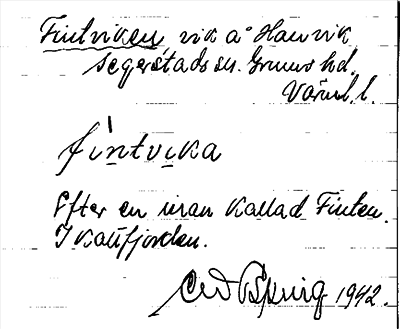 Fintviken vik å Hanvik
Segerstads sn. Grums hd.
Värml. l.
fintvika
Efter en man kallad Finten.
I Kattfjorden.
1942.